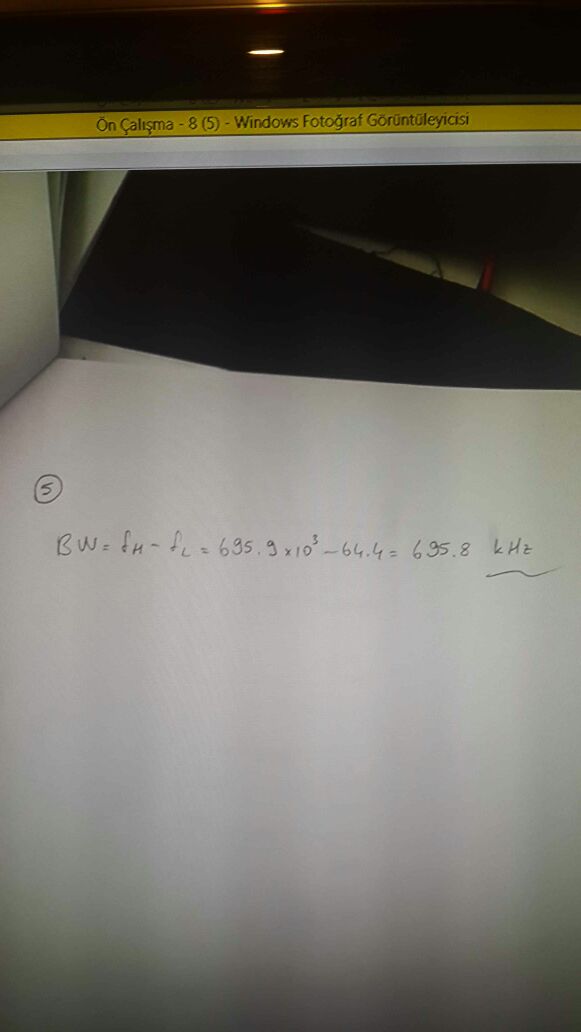 Ön Çalışma - 8 (5) - Windows Fotoğraf Görüntüleyicisi
5
BW = fH - fL = 695.9 x10³ - 64.4 = 695.8 kHz